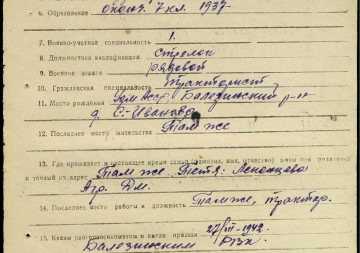 6. Образование оконч. 7 кл. 1937
7. Военно-учетная специальность 1.
8. Должностная квалификация Стрелок
9. Военное звание рядовой
10. Гражданская специальность Тракторист
11. Место рождения Удм АССР, Балезинский р-н
д. С-Иваново
12. Последнее место жительства Там же
13. Где проживает в настоящее время семья (фамилия, имя, отчество) жены или родителей
и точный их адрес Там же. Тетя:
14. Последнее место работы и должность Там же, трактор.
15. Каким райвоенкоматом и когда призван 27/III-1942.
Балезинским РВК.